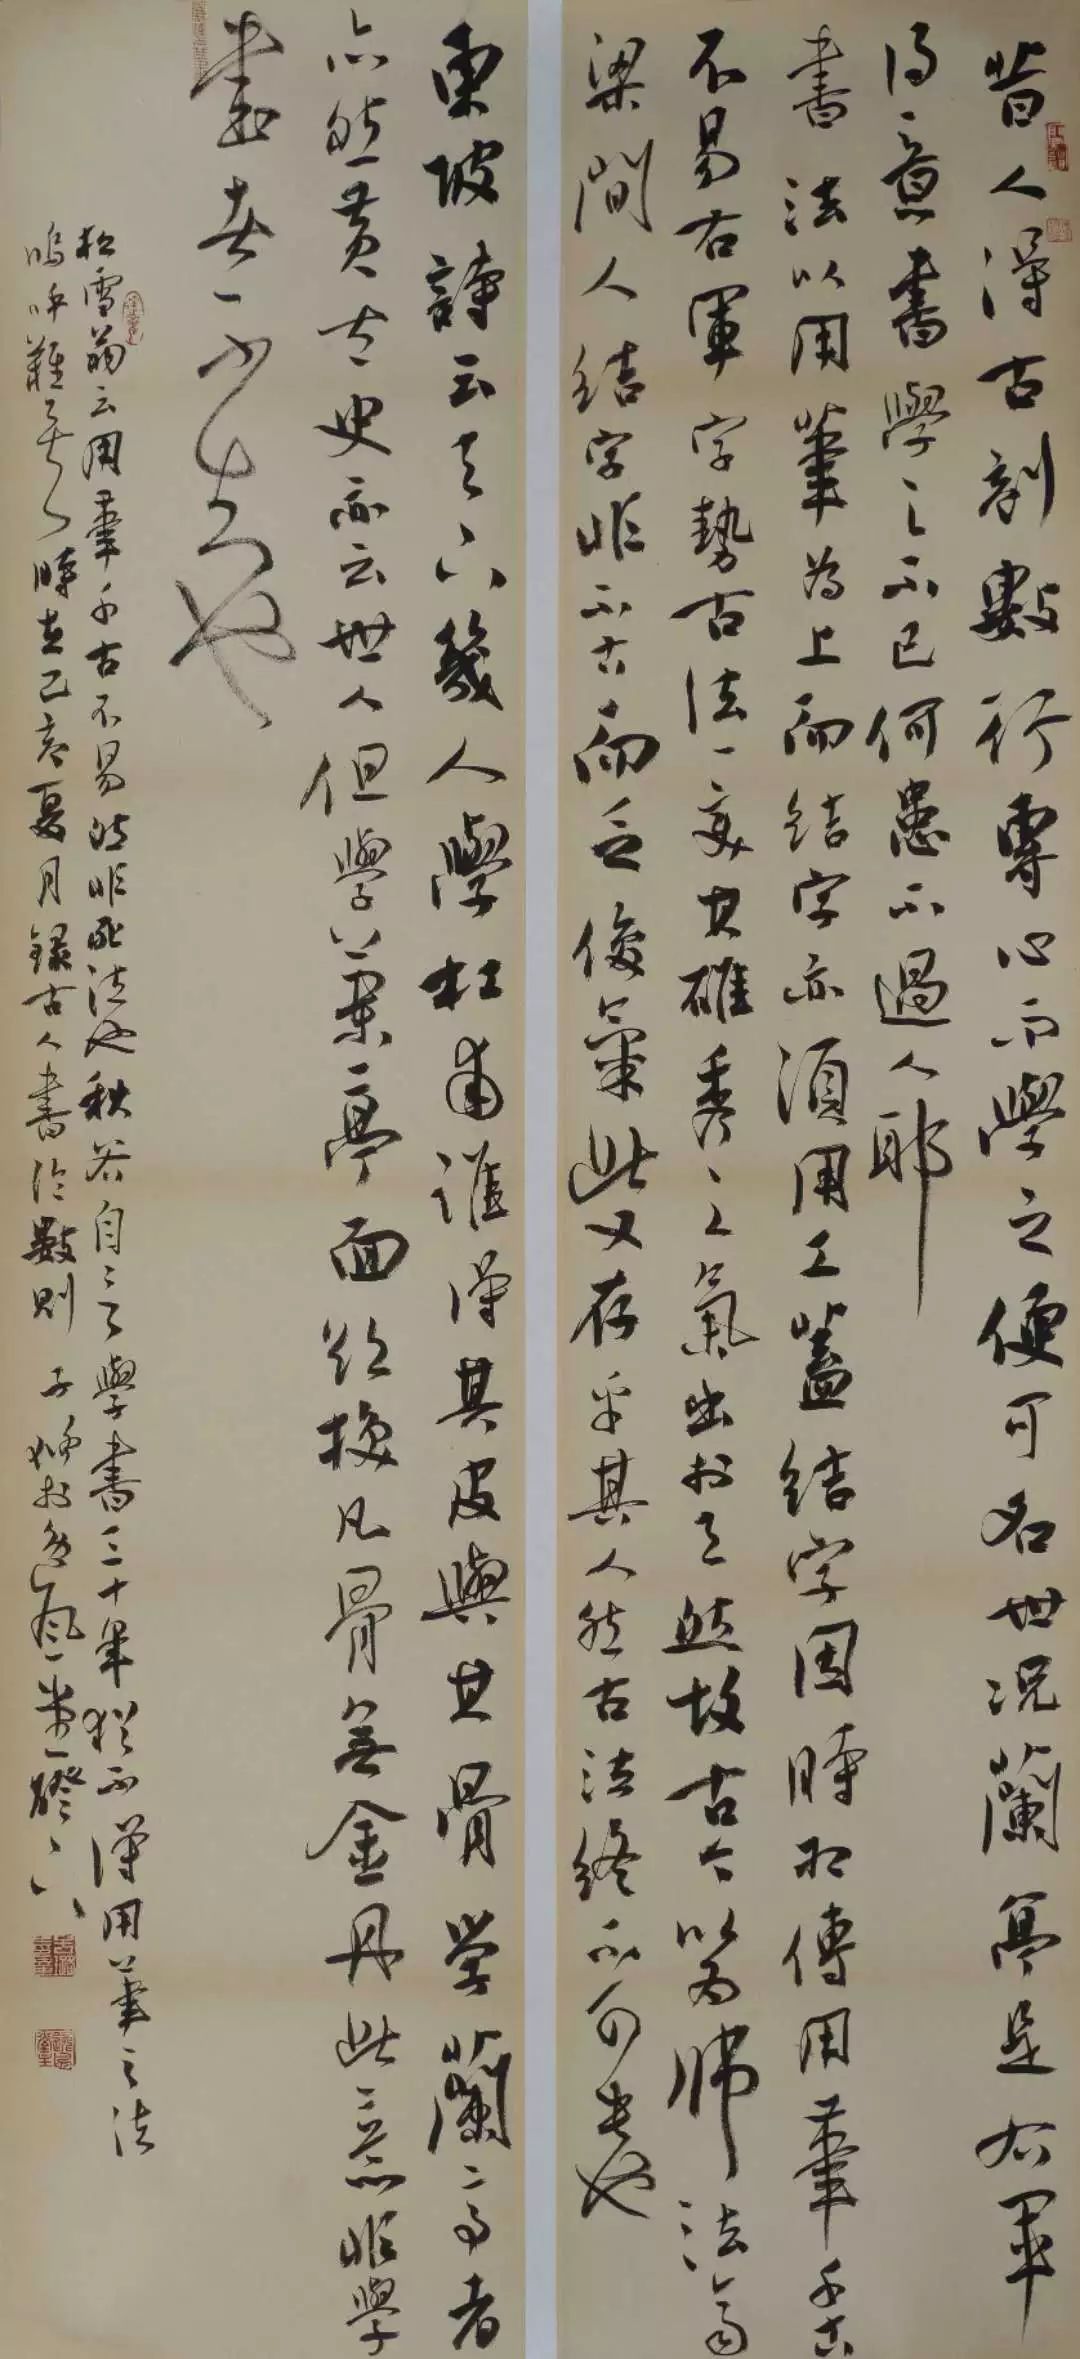 昔人得古刻數行專心而學之便可名世况蘭亭是右軍
得意書學之不已何患不過人耶
書法以用筆為上而結字亦須用工蓋結字因時相傳用筆千古
不易右軍字勢古法一變其雄秀之氣出於天然故古今以為師法齊
梁間人結字非不古而乏俊氣此又存乎其人然古法終不可失也
東坡詩云天下幾人學杜甫誰得其皮與其骨學蘭亭者
亦然黄太史亦云世人但學蘭亭面欲換凡骨無金丹此意非學
書者不知也
松雪翁云用筆千古不易然非死法也秋谷自言學書三十年猶不得用筆之法
嗚呼難矣 時在己亥夏月録古人書論數則 子 於 風堂燈下